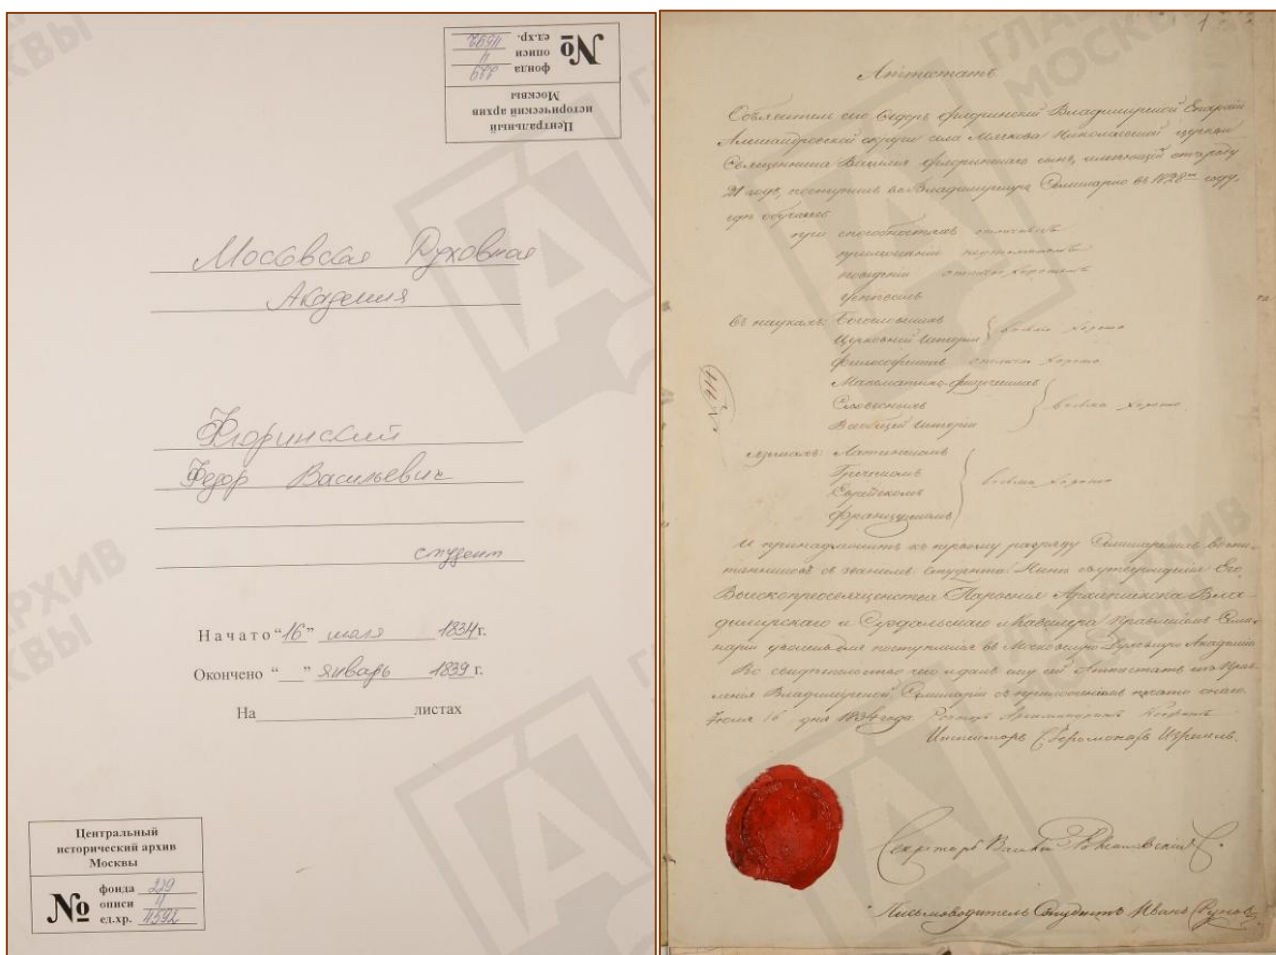 Центральный
исторический архив
Москвы
№
фонда 229
описи 4
ед.хр. 4592
Московская Духовная
Академия
Флоринский
Федор Васильевич
студент
Начато “16” июля 1834 г.
Окончено “ ” январь 1839 г.
На листах
Центральный
исторический архив
Москвы
№
фонда 229
описи 4
ед.хр. 4592
ГЛАВАРХИВ
МОСКВЫ
Аттестатъ
Объявитель сего Ѳедоръ Флоринскій Владимирской Епархіи
Александровской округи села Мячкова Николаевской церкви
Священника Василія Флоринскаго сынъ, имѣющій отъ роду
21 годъ, поступилъ во Владимирскую Семинарію въ 1828мъ году,
гдѣ обучался
при способностяхъ
прилежаніи
поведеніи хорошемъ
успѣхи
въ наукахъ: Богословскихъ
Церковной Исторіи весьма хорошо
Философскихъ хорошо
Математико-физическихъ
Словесныхъ весьма хорошо
Всеобщей Исторіи
языкахъ: Латинскомъ
Греческомъ
Еврейскомъ весьма хорошо
Французскомъ
и принадлежитъ къ первому разряду Семинарскихъ воспи-
танниковъ съ званіемъ Студента. Нынѣ съ утвержденія Его
Высокопреосвященства Парѳенія Архіепископа Вла-
димирскаго и Суздальскаго и Кавалера Правленіемъ Семи-
наріи уволенъ для поступленія въ Московскую Духовную Академію.
Во свидѣтельство чего и данъ ему сей Аттестатъ изъ Прав-
ленія Владимирской Семинаріи съ приложеніемъ печати онаго.
Іюля 16 дня 1834 года Ректоръ Архимандритъ
Инспекторъ Іеромонахъ Израиль.
Секретарь
Письмоводитель Студентъ Иванъ